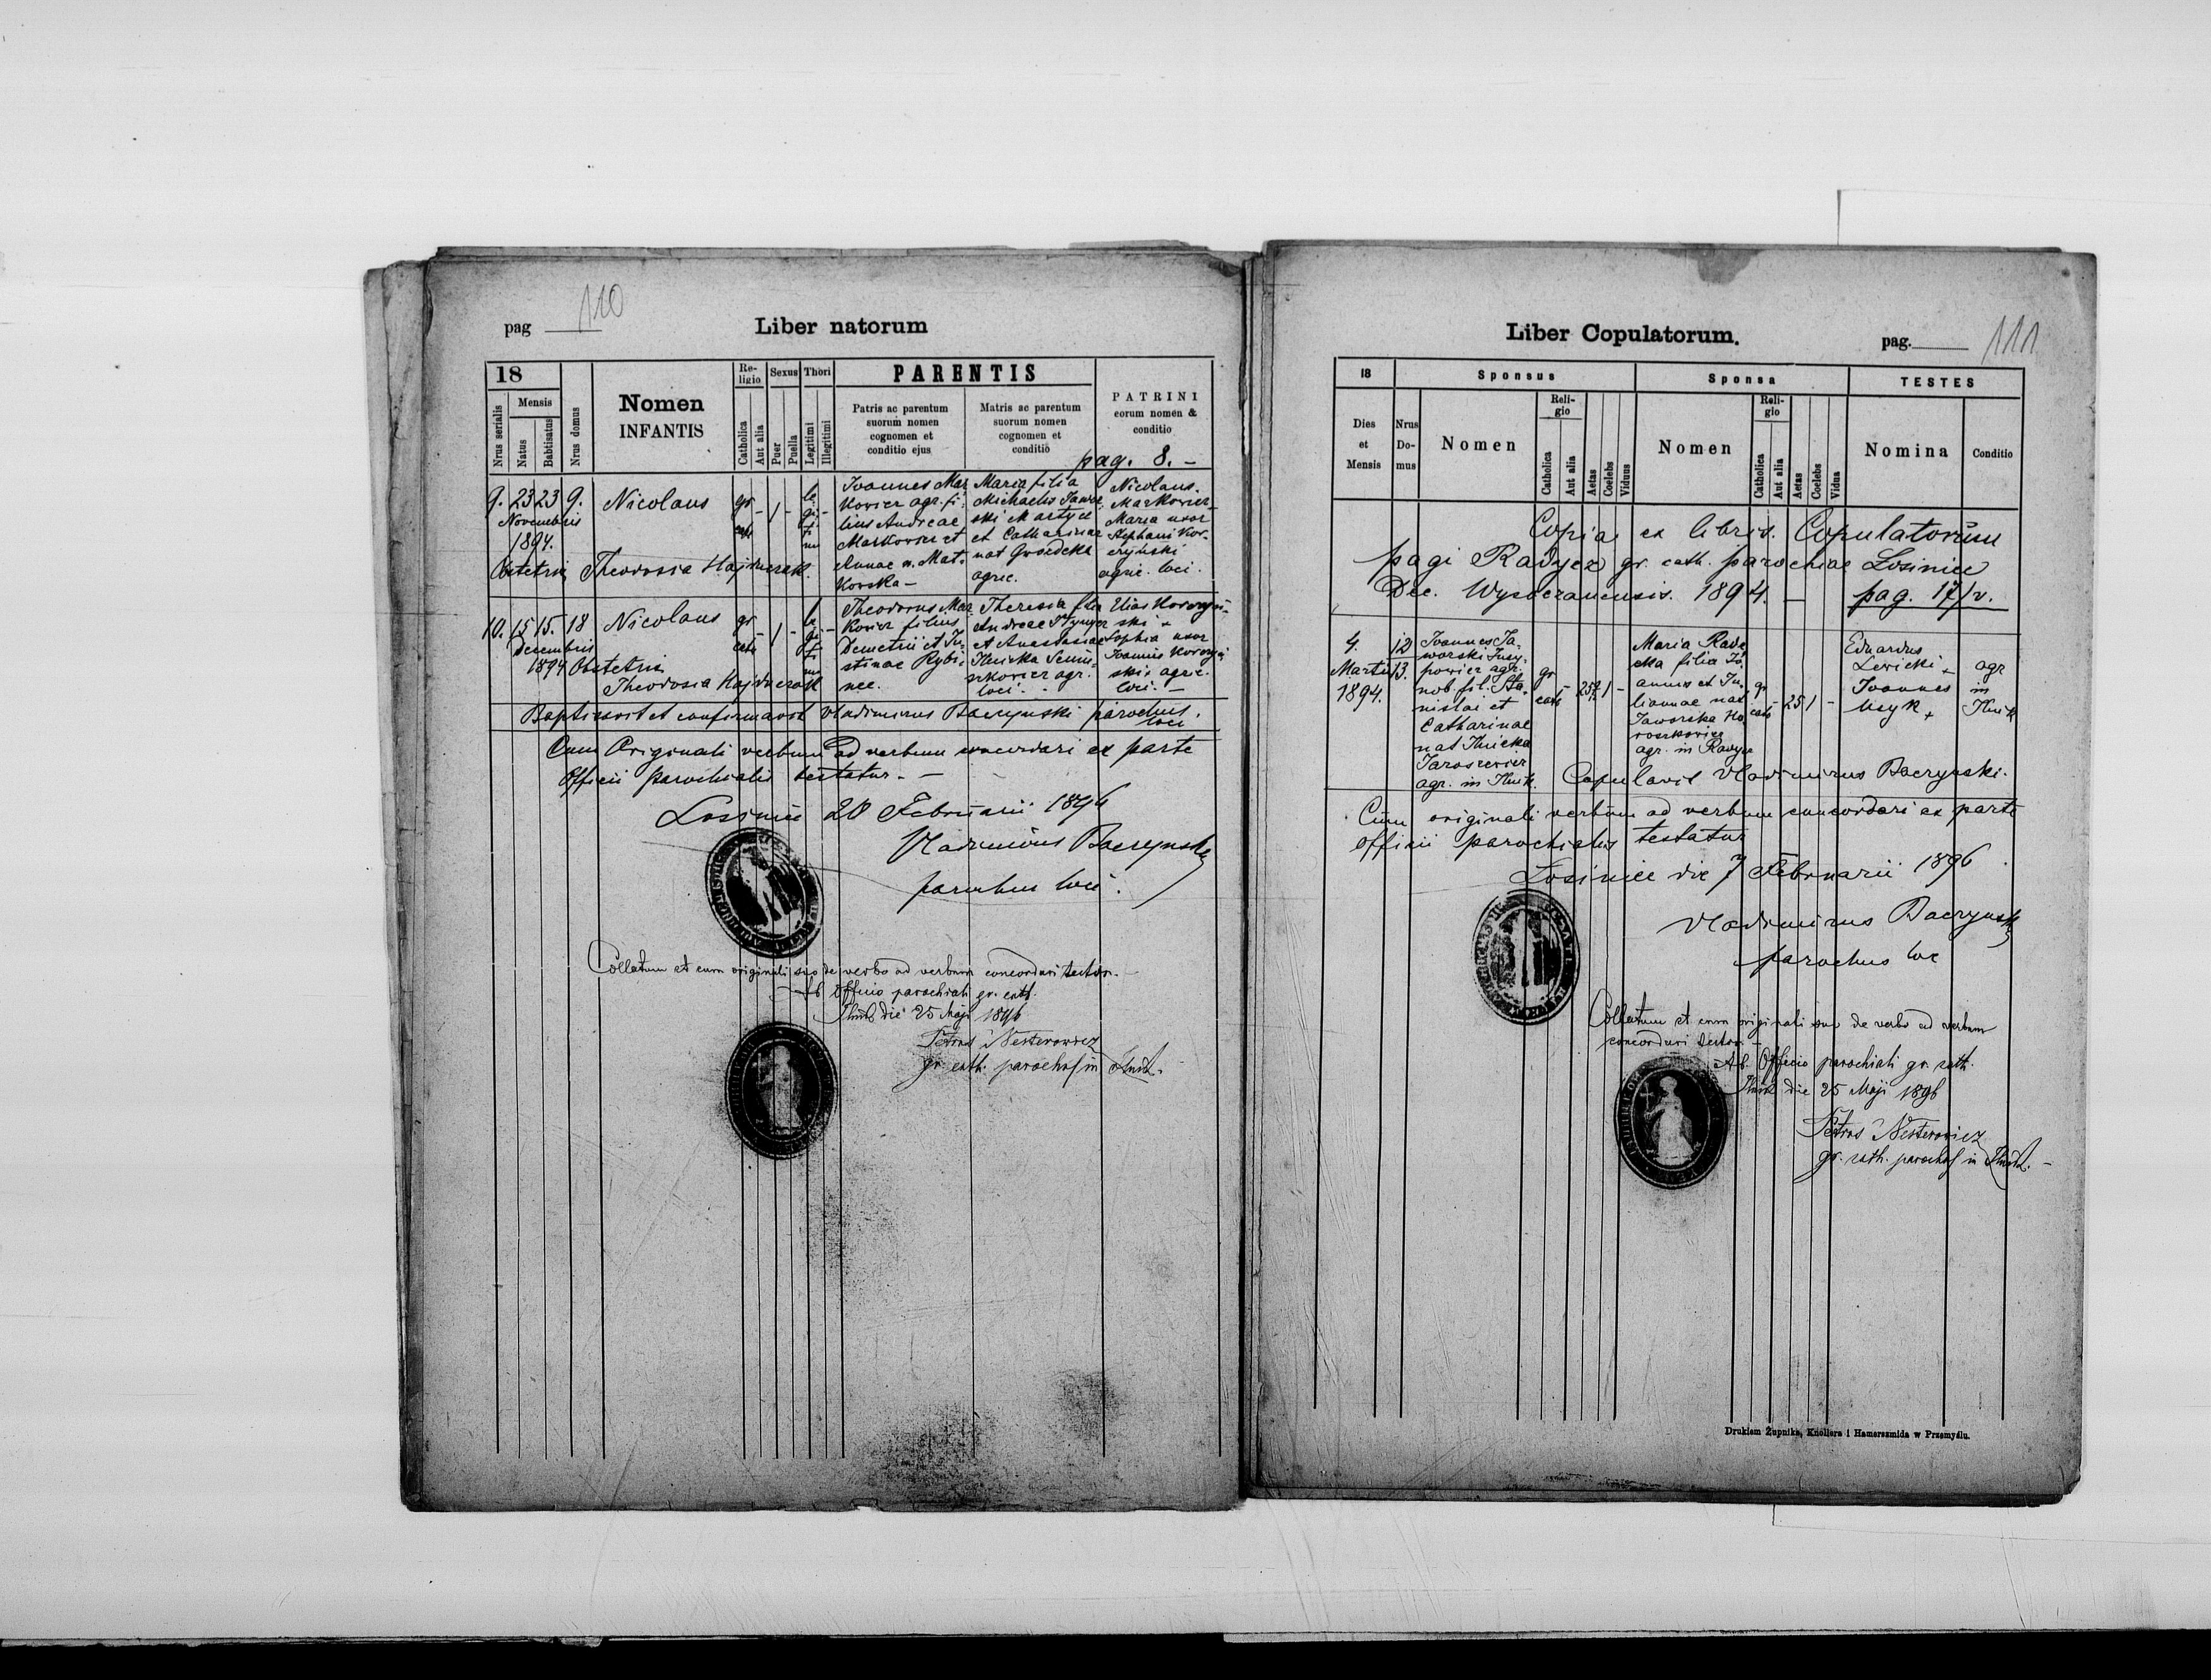 pag 110
Liber natorum
18
Nrus serialis
Mensis
Natus
Babtisatus
Nrus domus
Nomen
INFANTIS
Re-
ligio
Catholica
Aut alia
Sexus
Puer
Puella
Thori
Legitimi
Illegitimi
PARENTIS
Patris ac parentum
suorum nomen
cognomen et
conditio ejus
Matris ac parentum
suorum nomen
cognomen et
conditio
PATRINI
eorum nomen &
conditio
pag. 8. -
9. 23 23 9.
Novembris
1894.
Nicolaus
gr
cath
- 1 -
le
gi
ti
mi
Joannes Mar
kowicz agr. fi-
lius Andreae
Markowicz et
Annae n. Mat-
kowska -
Maria filia
Michaelis Jawor
ski Martycz
et Catharinae
nat Gwozdecka
agric.
Nicolaus
Markowicz
Maria uxor
Stephani Kor-
czyński
agric. loci.
Obstetrix Theodosia Hajduczak.
10. 15 15. 18
Decembris
1894
Nicolaus
gr
cath
- 1 -
le
gi
ti
mi
Theodorus Mar
kowicz filius
Demetrii et Ju-
stinae Rybi-
nec.
Theresia filia
Andreae
et Anastasiae
Ilnicka
agr.
loci.
Elias Korczyń-
ski +
Sophia uxor
Joannis Korczyń
ski agric.
loci. -
Obstetrix
Theodosia Hajduczak
Baptisavit et confirmavit Vladimirus Baczynski parochus
loci
Cum Originali verbum ad verbum concordari ex parte
Officii parochialis testatur. -
Losiniec 20 Februarii 1896
Vladimirus Baczynski
parochus loci.
Collatum et cum originali suo de verbo ad verbum concordari testor. -
Ab Officio parochiali gr. cath.
Ilnik die 25 Maji 1896
Petrus Nesterowicz
gr. cath. parochus in Ilnik. -
Liber Copulatorum.
pag. 111
18
Dies
et
Mensis
Nrus
Do-
mus
Sponsus
Nomen
Reli-
gio
Catholica
Aut alia
Aetas
Coelebs
Viduus
Sponsa
Nomen
Reli-
gio
Catholica
Aut alia
Aetas
Coelebs
Vidua
TESTES
Nomina
Conditio
Copia ex libris. Copulatorum
pagi Radycz gr. cath. parochiae Losiniec
Dec. Wysoczanensis. 1894. - pag. 17/v.
4.
Martii
1894.
12
13.
Joannes Ja-
worski Jusy-
powicz agr.
nob. fil. Sta-
nislai et
Catharinae
nat Ilnicka
Jaroszewicz
agr. in Ilnik.
gr
cath
Maria Rady
cka filia Jo-
annis et Ju-
liannae nat
Jaworska Ho
roszkowicz
agr. in Radycz
gr
cath
- 25 1 -
Eduardus
Lewicki +
Joannes
Usyk +
agr
in
Ilnik
Copulavit Vladimirus Baczynski.
Cum originali verbum ad verbum concordari ex parte
officii parochialis testatur
Losiniec die 7 Februarii 1896
Vladimirus Baczynski
parochus loc
Collatum et cum originali suo de verbo ad verbum
concordari testor. -
Ab. Officio parochiali gr. cath.
Ilnik die 25 Maji 1896
Petrus Nesterowicz
gr. cath. parochus in Ilnik. -
Drukiem Żupnika, Knollera i Hamerszmida w Przemyślu.